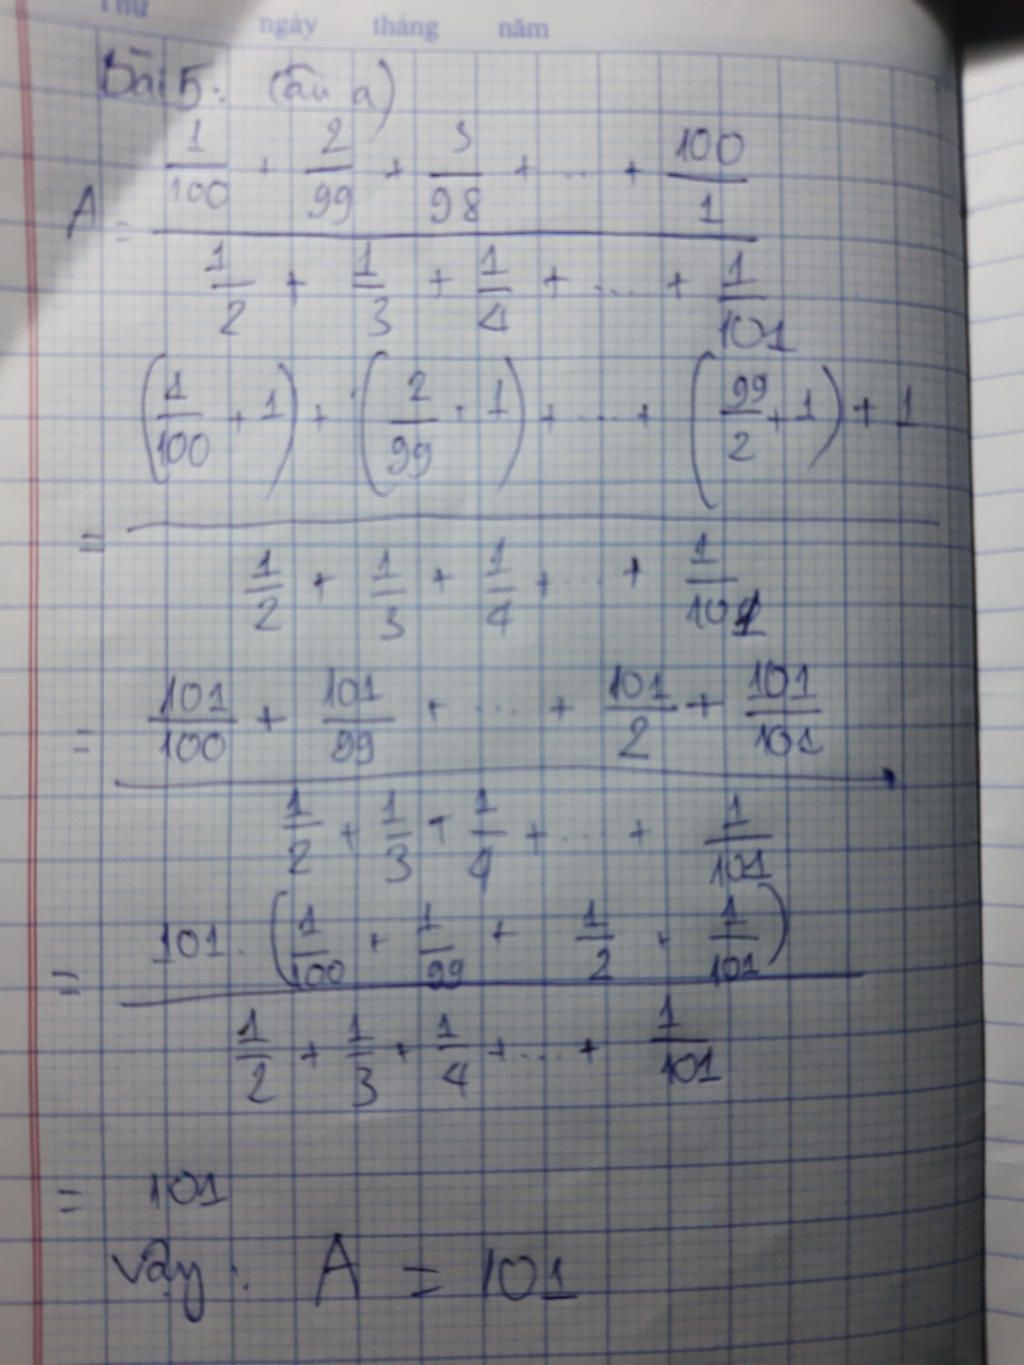 Thứ ngày tháng năm
Bài 5: (câu a)
A = \frac{\frac{1}{100} + \frac{2}{99} + \frac{3}{98} + ... + \frac{100}{1}}{\frac{1}{2} + \frac{1}{3} + \frac{1}{4} + ... + \frac{1}{101}}
= \frac{(\frac{1}{100} + 1) + (\frac{2}{99} + 1) + ... + (\frac{99}{2} + 1) + 1}{\frac{1}{2} + \frac{1}{3} + \frac{1}{4} + ... + \frac{1}{101}}
= \frac{\frac{101}{100} + \frac{101}{99} + ... + \frac{101}{2} + \frac{101}{101}}{\frac{1}{2} + \frac{1}{3} + \frac{1}{4} + ... + \frac{1}{101}}
= \frac{101 . (\frac{1}{100} + \frac{1}{99} + \frac{1}{2} + \frac{1}{101})}{\frac{1}{2} + \frac{1}{3} + \frac{1}{4} + ... + \frac{1}{101}}
= 101
Vậy: A = 101